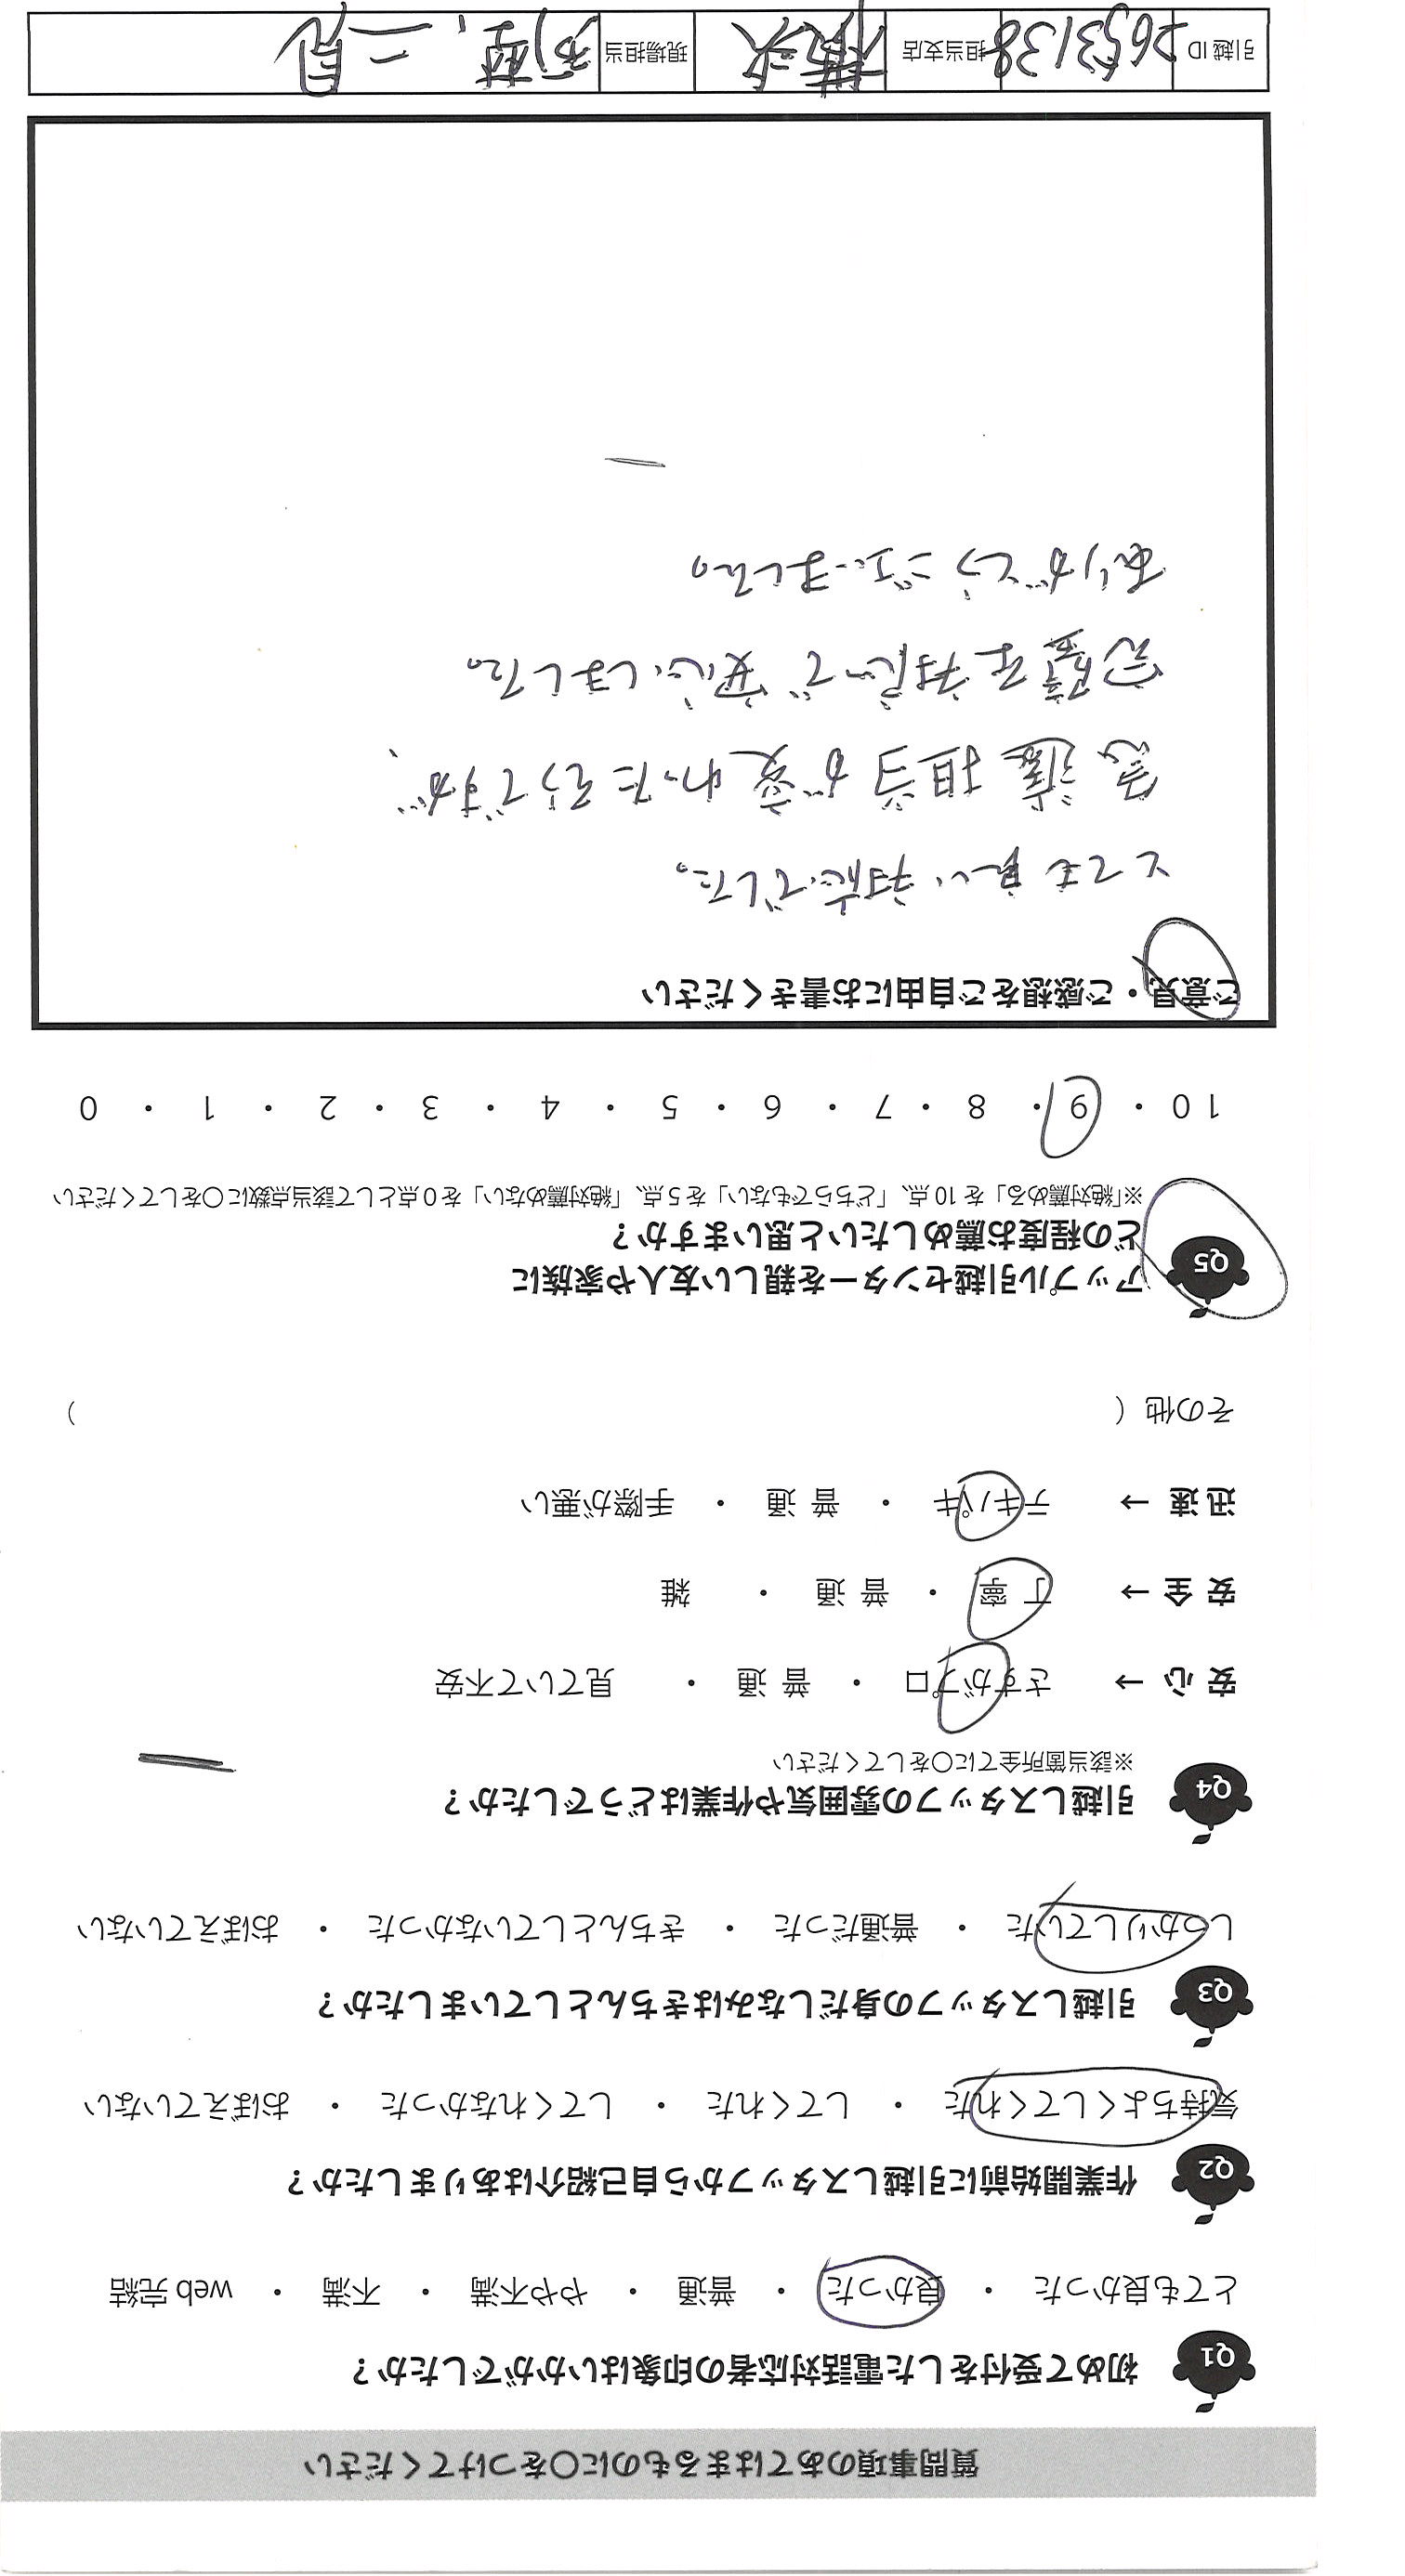 質問事項のあてはまるものに〇をつけてください
Q1 初めて受付をした電話対応者の印象はいかがでしたか？
とても良かった ・ 良かった ・ 普通 ・ やや不満 ・ 不満 ・ web 完結
Q2 作業開始前に引越しスタッフから自己紹介はありましたか？
気持ちよくしてくれた ・ してくれた ・ してくれなかった ・ おぼえていない
Q3 引越しスタッフの身だしなみはきちんとしていましたか？
しっかりしていた ・ 普通だった ・ きちんとしていなかった ・ おぼえていない
Q4 引越しスタッフの雰囲気や作業はどうでしたか？
※該当箇所全てに〇をしてください
安 心 → さすがプロ ・ 普 通 ・ 見ていて不安
安 全 → 丁 寧 ・ 普 通 ・ 雑
迅 速 → テキパキ ・ 普 通 ・ 手際が悪い
その他（ ）
Q5 アップル引越センターを親しい友人や家族に
どの程度お薦めしたいと思いますか？
※「絶対薦める」を 10 点、「どちらでもない」を 5 点、「絶対薦めない」を 0 点として該当点数に〇をしてください
10 ・ 9 ・ 8 ・ 7 ・ 6 ・ 5 ・ 4 ・ 3 ・ 2 ・ 1 ・ 0
ご意見・ご感想をご自由にお書きください
とても良い対応でした。
急遽担当が変わったそうですが、
完璧な対応で安心しました。
ありがとうございました。
引越 ID 2653138 担当支店 横浜 現場担当 二見